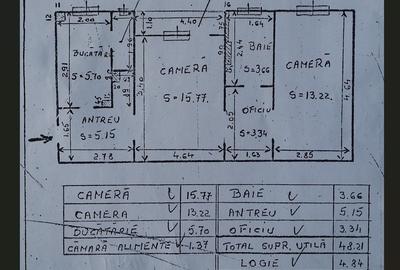 11
16
12
2.00
1.10
4.40
75
1.64
BUCĂTĂRIE
S=5.70
2.91
1.96
CAMERĂ
S=15.77
3.40
90
BAIE
S=3.66
2.44
CAMERĂ
S=13.22
4.64
ANTREU
S=5.15
1.65
OFICIU
S=3.34
2.05
2.78
4.64
1.63
2.85
CAMERĂ 15.77 BAIE 3.66
CAMERA 13.22 ANTREU 5.15
BUCĂTĂRIE 5.70 OFICIU 3.34
CĂMARĂ ALIMENTE 1.37 TOTAL SUPR. UTILĂ 48.21
LOGIE 4.84